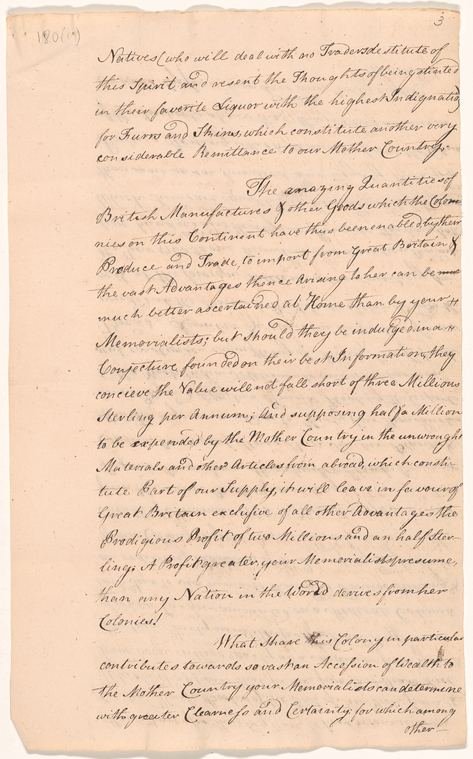 3
180(19)
Natives (who will deal with no Traders destitute of
this Spirit, and resent the Thoughts of being stinted
in their favorite Liquor with the highest Indignatio
for Furrs and Skins, which constitute another very
considerable Remittance to our Mother Country.
The amazing Quantities of
British Manufactures & other Goods which the Colo
nies on this Continent have thus been enabled by their
Produce and Trade, to import from Great Britain &
the vast Advantages thence Arising to her can be
much better ascertained at Home than by your
Memorialists; but should they be indulged in a
Conjecture founded on their best Information, they
concieve the Value will not fall short of three Millions
Sterling per Annum; And supposing half a Million
to be expended by the Mother Country in the unwrough
Materials and other Articles from abroad, which consti
tute Part of our Supply, it will leave in favour of
Great Britain exclusive of all other Advantages the
Prodigious Profit of two Millions and an half Ster
ling: A Profit greater, your Memorialists presume,
than any Nation in the World derives from her
Colonies!
What share this Colony in particular
contributes towards so vast an Accession of Wealth to
the Mother Country your Memorialists can determine
with greater Clearness and Certainty; for which among
other